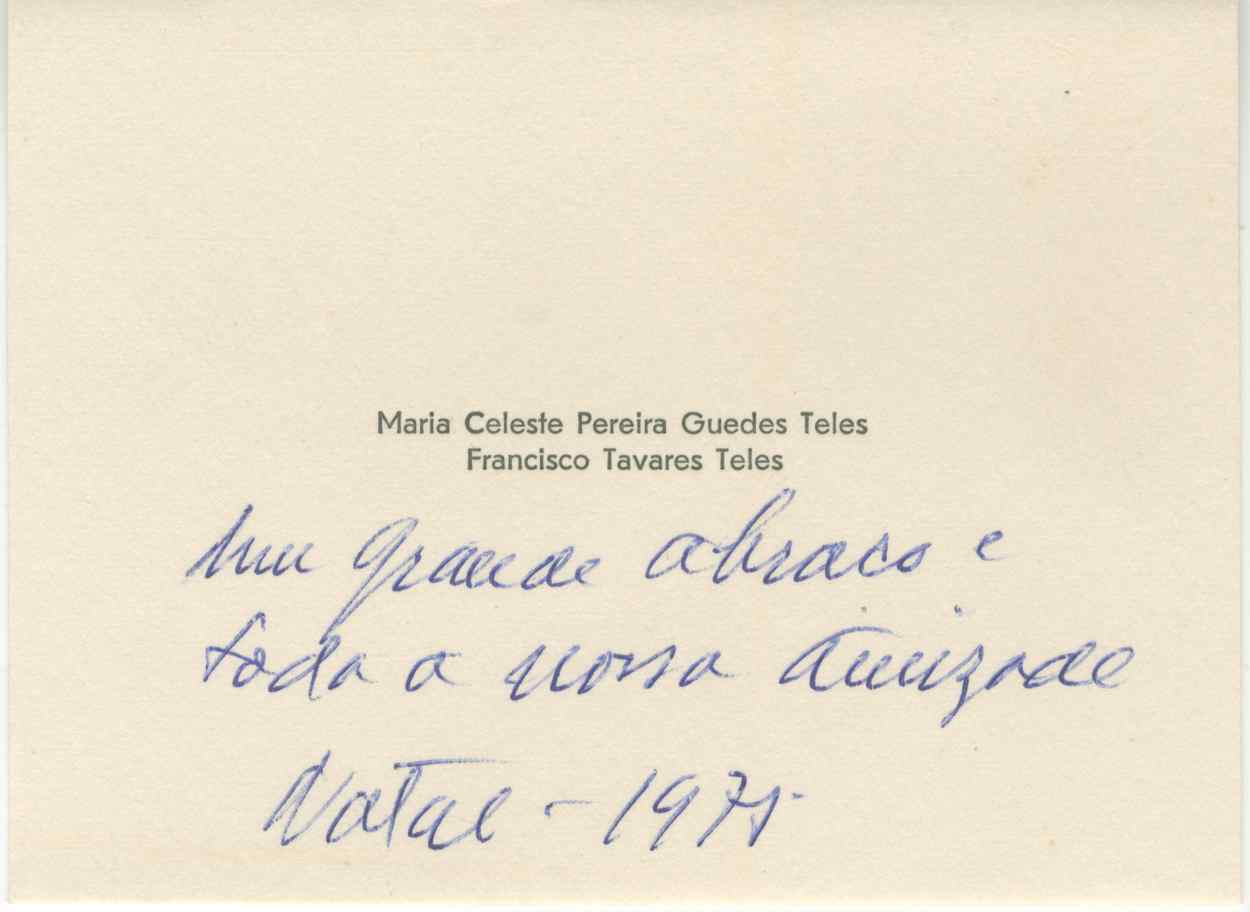 Maria Celeste Pereira Guedes Teles
Francisco Tavares Teles
Um grande abraço e
toda a nossa amizade
Natal - 1975